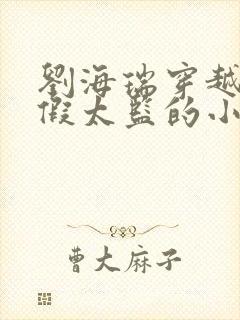 劉海瑞穿越
假太監的小
曹大麻子